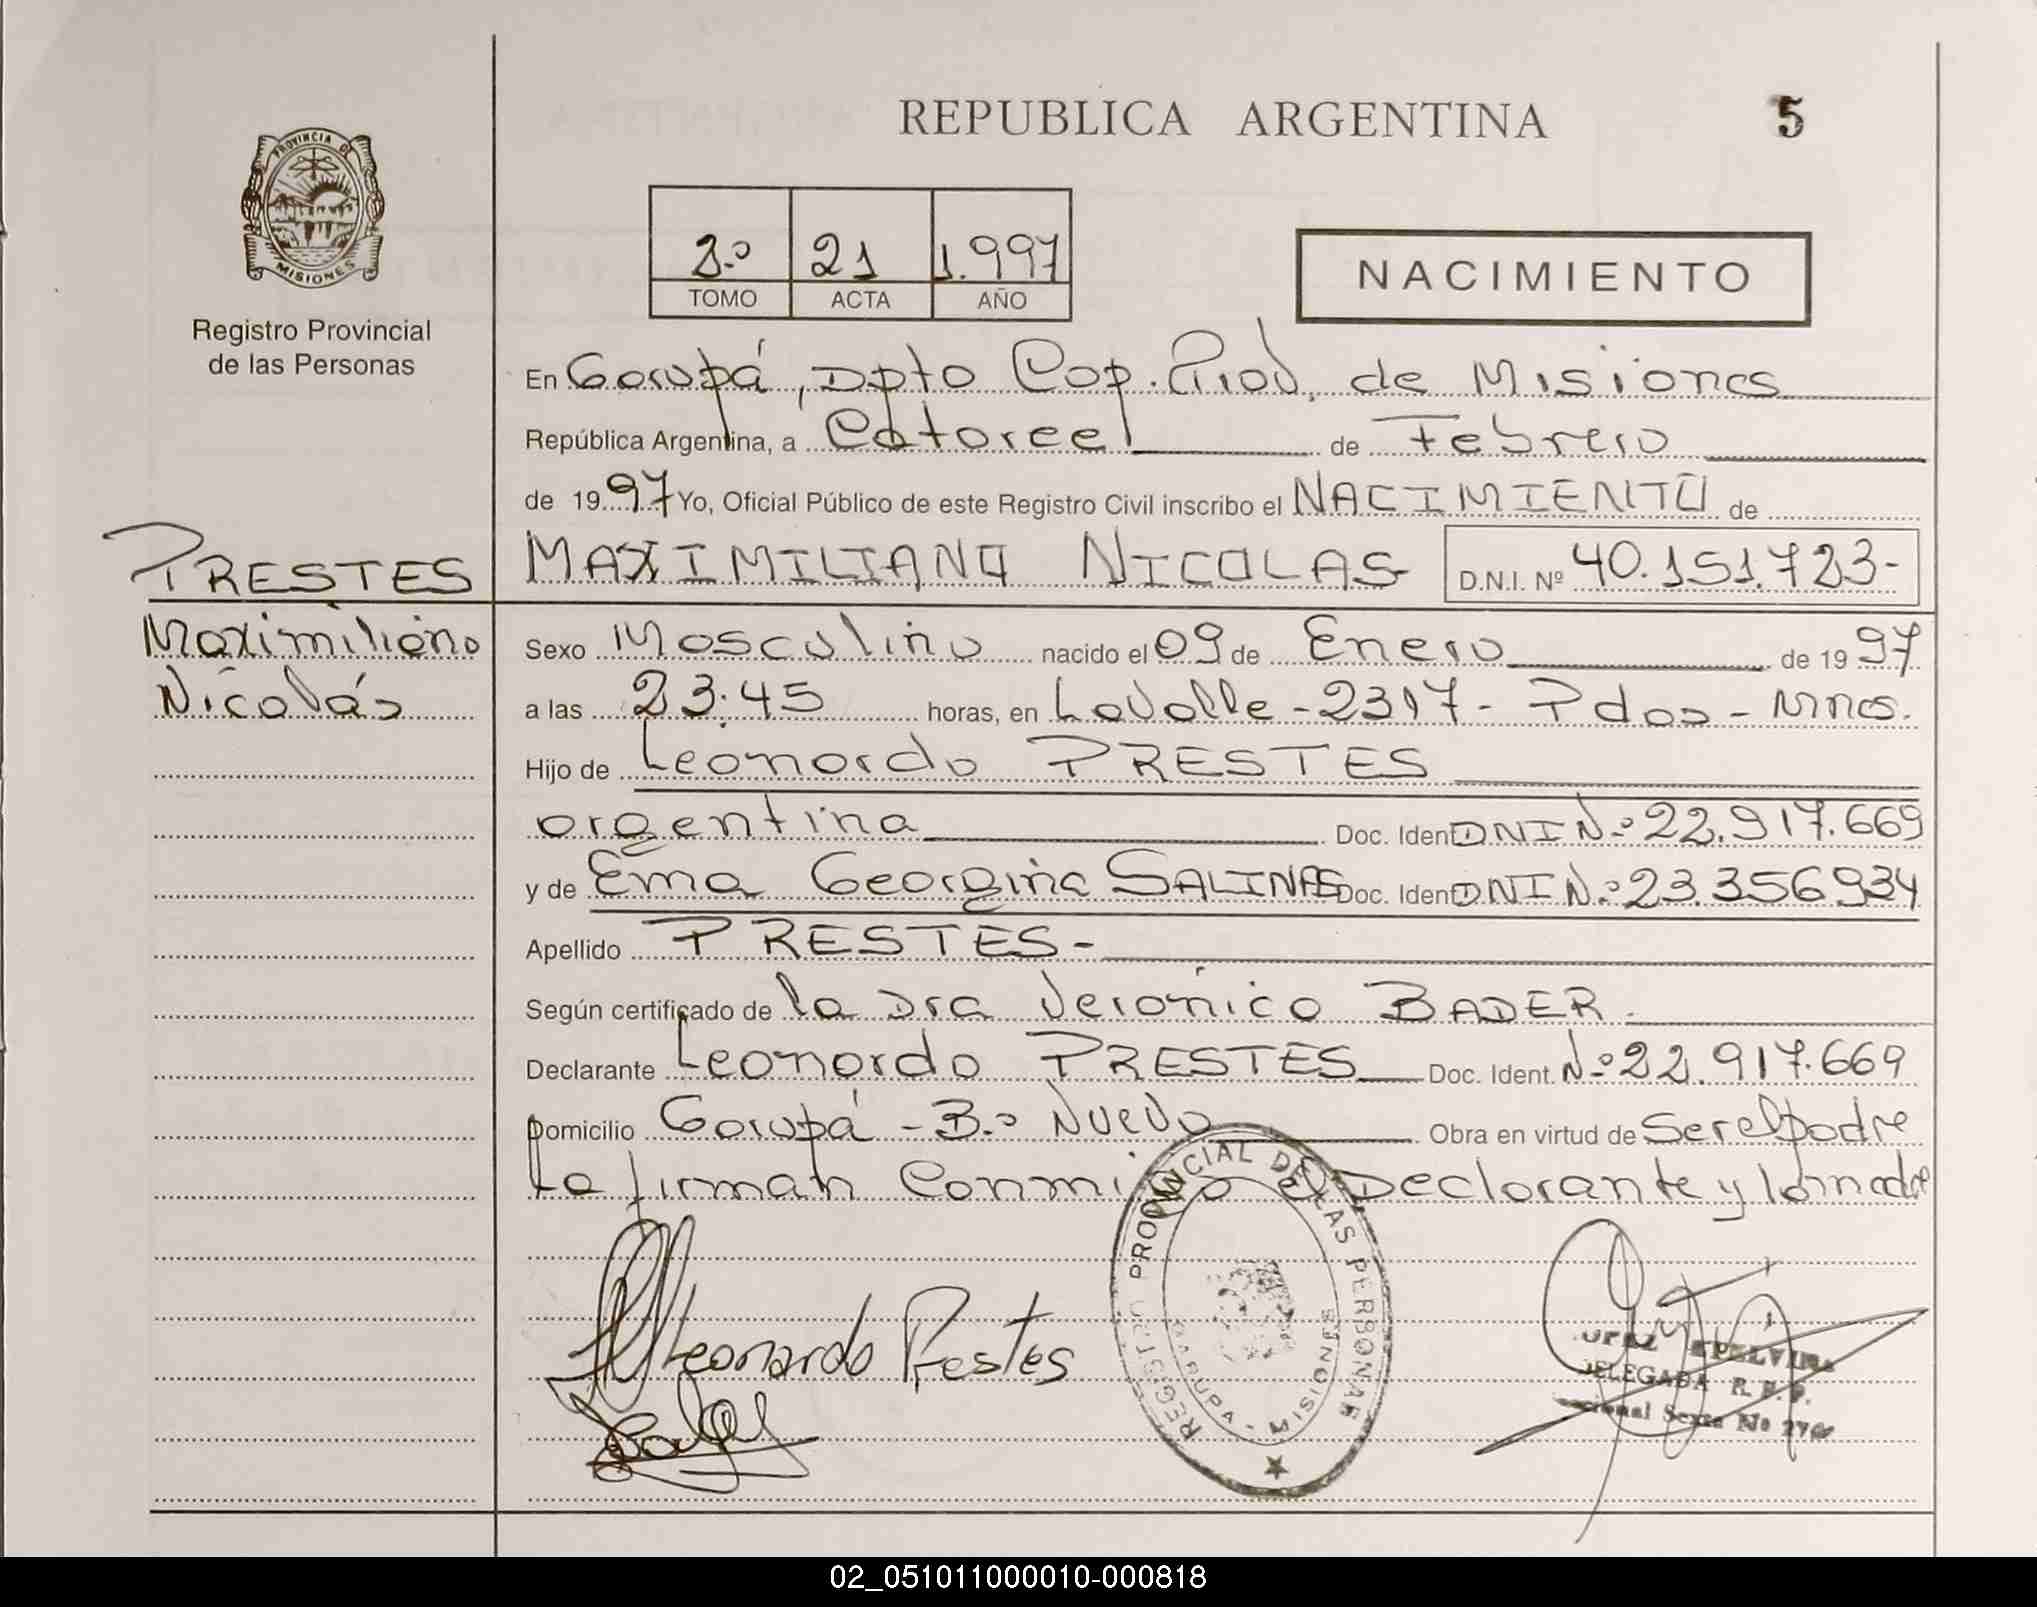 REPUBLICA ARGENTINA
5
PROVINCIA DE
MISIONES
Registro Provincial
de las Personas
2º 21 1.997
TOMO ACTA AÑO
NACIMIENTO
En Garupá, Dpto Cap. Prov. de Misiones
República Argentina, a Catorce de Febrero
de 1997 Yo, Oficial Público de este Registro Civil inscribo el NACIMIENTO de
PRESTES
Maximiliano
Nicolás
MAXIMILIANO NICOLAS D.N.I. Nº 40.151.723-
Sexo Masculino nacido el 09 de Enero de 1997
a las 23:45 horas, en Lavalle - 2317 - Pdas - Mnes.
Hijo de Leonardo PRESTES
argentina Doc. Ident DNI Nº 22.917.669
y de Ema Georgina SALINAS Doc. Ident DNI Nº 23.356934
Apellido PRESTES-
Según certificado de la Dra Verónica BADER.
Declarante Leonardo PRESTES Doc. Ident. Nº 22.917.669
Domicilio Garupá - Bº Nuevo Obra en virtud de Ser el padre
La firman Conmigo el Declarante y la madre
Leonardo Prestes
REGISTRO PROVINCIAL DE LAS PERSONAS
GARUPA - MISIONES
DELEGADA R. P. P.
02_051011000010-000818